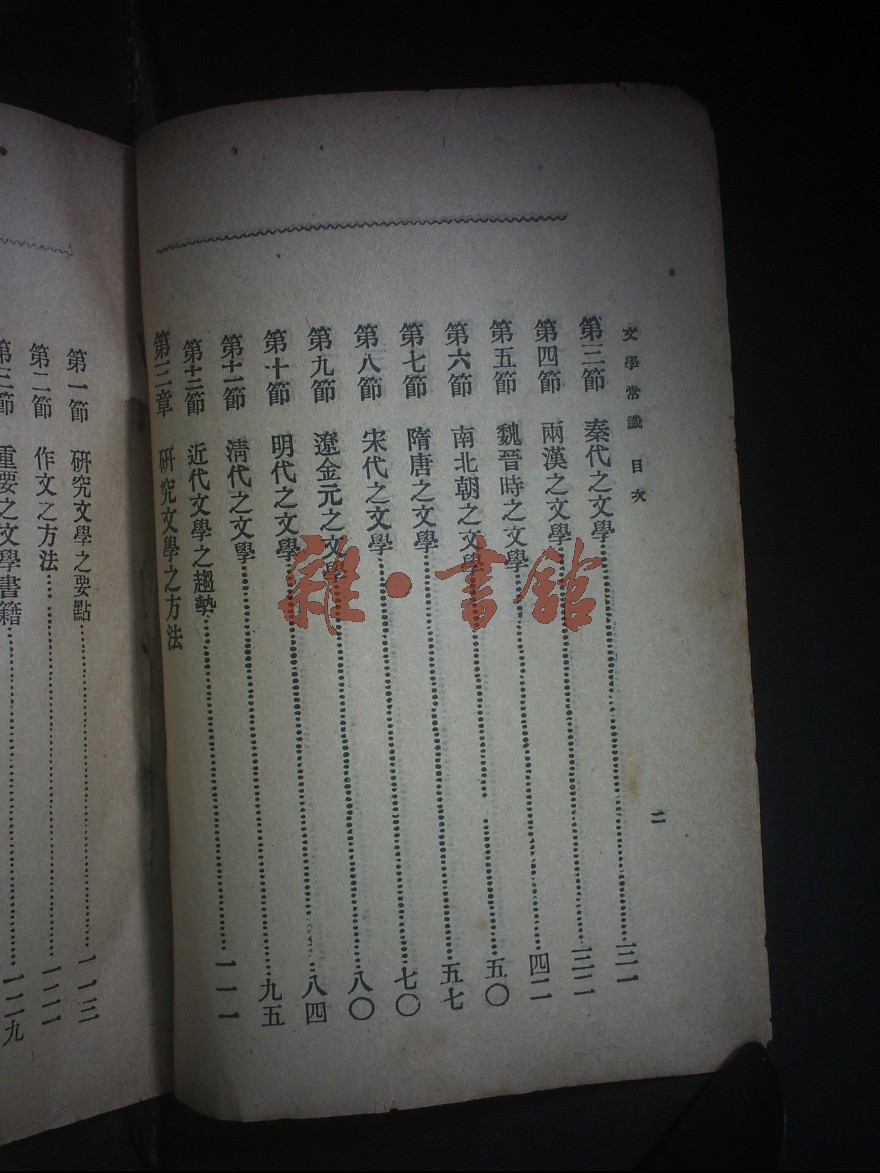 文學常識 目次
二
第三節 秦代之文學……三一
第四節 兩漢之文學……三二
第五節 魏晉時之文學……四二
第六節 南北朝之文學……五〇
第七節 隋唐之文學……五七
第八節 宋代之文學……七〇
第九節 遼金元之文學……八〇
第十節 明代之文學……八四
第十一節 清代之文學……九五
第十二節 近代文學之趨勢……一一一
第三章 研究文學之方法
第一節 研究文學之要點……一一三
第二節 作文之方法……一二一
第三節 重要之文學書籍……一二九
雜·書館